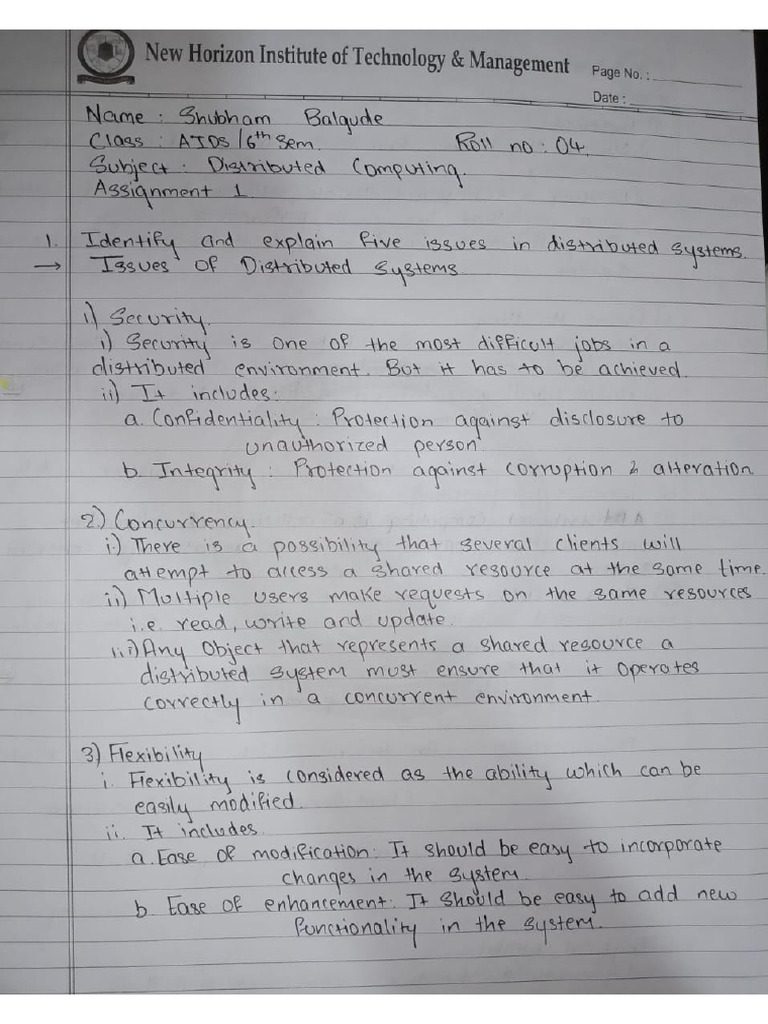 New Horizon Institute of Technology & Management
Page No. :
Date :
Name : Shubham Balgude
Class : AIDS /6th Sem. Roll no : 04.
Subject : Distributed Computing.
Assignment 1
1. Identify and explain five issues in distributed systems.
→ Issues of Distributed Systems
1) Security.
i) Security is one of the most difficult jobs in a
distributed environment. But it has to be achieved.
ii) It includes:
a. Confidentiality : Protection against disclosure to
unauthorized person
b. Integrity : Protection against corruption & alteration
2.) Concurrency.
i.) There is a possibility that several clients will
attempt to access a shared resource at the same time.
ii) Multiple users make requests on the same resources
i.e. read, write and update.
iii) Any Object that represents a shared resource a
distributed system must ensure that it operates
correctly in a concurrent environment.
3) Flexibility
i. Flexibility is considered as the ability which can be
easily modified.
ii. It includes.
a. Ease of modification: It should be easy to incorporate
changes in the system.
b. Ease of enhancement: It should be easy to add new
functionality in the system.